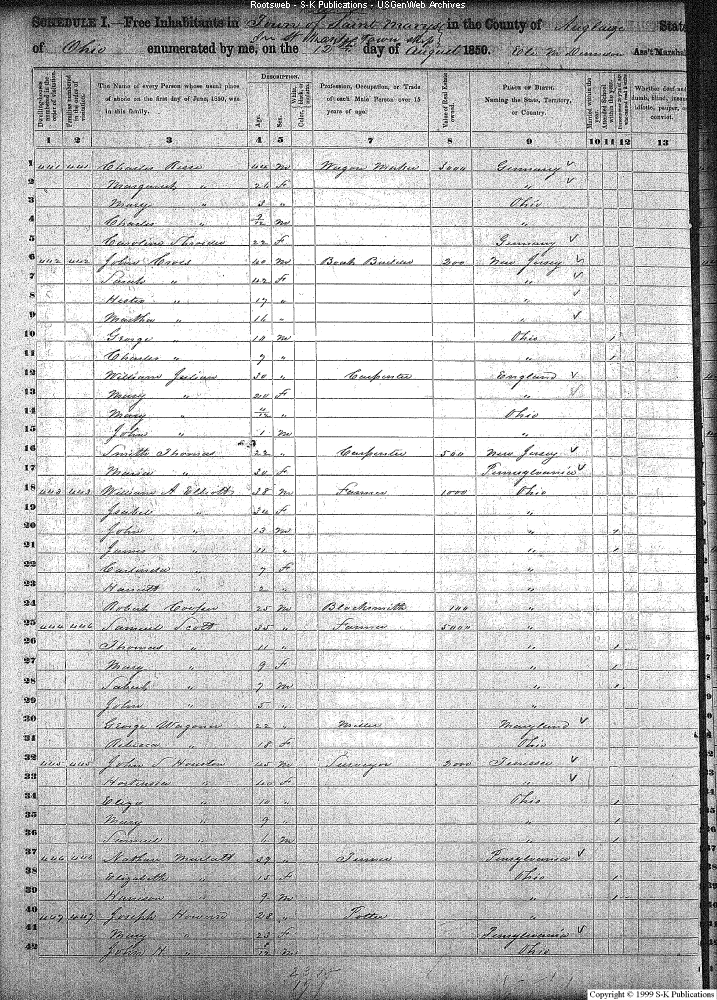 Rootsweb - S-K Publications - USGenWeb Archives
SCHEDULE I.—Free Inhabitants in Town of Saint Marys in the County of Auglaize State
in St Marys Township
of Ohio enumerated by me, on the 12th day of August 1850. Ass't Marshal
DESCRIPTION.
Dwelling-houses numbered in the order of visitation.
Families numbered in the order of visitation.
The Name of every Person whose usual place of abode on the first day of June, 1850, was in this family.
Age.
Sex.
White, Color, black, or mulatto.
Profession, Occupation, or Trade of each Male Person over 15 years of age.
Value of Real Estate owned.
PLACE OF BIRTH. Naming the State, Territory, or Country.
Married within the year.
Attended School within the year.
Whether deaf and dumb, blind, insane, idiotic, pauper, or convict.
1 2 3 4 5 6 7 8 9 10 11 12 13
1 441 441 Charles 44 m Wagon Maker 3000 Germany
2 Margaret " 26 F "
3 Mary " 3 " Ohio
4 Charles " 9/12 m "
5 Caroline 22 F Germany
6 442 442 John 40 m Boat Builder 200 New Jersey
7 Sarah " 42 F "
8 Hester " 17 " "
9 Martha " 16 " "
10 George " 10 m Ohio 1
11 Charles " 7 " " 1
12 William Julian 30 " Carpenter England
13 Mary " 20 F "
14 Mary " " Ohio
15 John " 1 m "
16 Smith Thomas 22 " Carpenter 500 New Jersey
17 Maria " 20 F Pennsylvania
18 443 443 William A Elliott 38 m Farmer 1000 Ohio
19 Isabel " 34 F "
20 John " 13 m " 1
21 James " 11 " " 1
22 " 7 F "
23 Harriett " 2 " "
24 Robert Cooper 25 m Blacksmith 100 "
25 444 444 Samuel Scott 35 " Farmer 5000 "
26 Thomas " 11 " " 1
27 Mary " 9 F " 1
28 " 7 m " 1
29 John " 5 " "
30 George Wagoner 22 " Miller Maryland
31 Rebecca " 18 F Ohio
32 445 445 John S Houston 45 m Surveyor 2000 Tennessee
33 " 40 F "
34 Eliza " 10 " Ohio 1
35 Mary " 9 " " 1
36 Samuel " 6 m " 1
37 446 446 Nathan Marlatt 39 " Tinner Pennsylvania
38 Elizabeth " 15 F Ohio 1
39 Harrison " 9 m " 1
40 447 447 Joseph 28 " Potter "
41 Mary " 23 F Pennsylvania
42 John H. " m Ohio
Copyright © 1999 S-K Publications